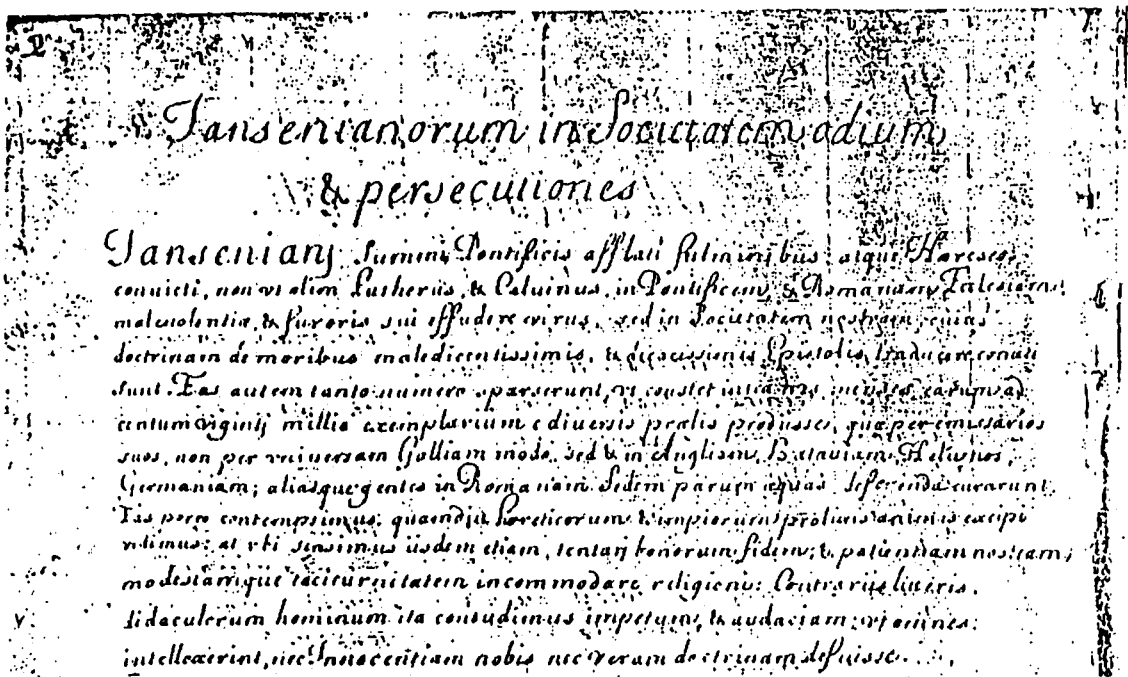 2
Jansenianorum in Societatem odium
& persecutiones
Janseniani Summi Pontificis afflati fulminibus atque Hæreseos
convicti, non vt olim Lutherus, & Caluinus, in Pontificem, & Romanam Ecclesiam
maleuolentiæ, & furoris sui effudere virus, sed in Societatem nostram, cuius
doctrinam de moribus maledicentissimis, & Epistolis, traducere conati
sunt. Eas autem tanto numero sparserunt, vt constet intra tres menses earum ad
centum viginti millia exemplarium e diuersis prælis prodijsse, quæ per emissarios
suos, non per vniuersam Galliam modo, sed & in Angliam, Batauiam, Heluetios,
Germaniam; aliasque gentes in Romanam Sedem parum æquas deferenda curarunt.
Eas porro contempsimus, quamdiu hæreticorum & impiorum animis excipi
vidimus: at vbi sensimus iisdem etiam, tentari bonorum fidem, & patientiam nostram,
modestamque taciturnitatem incommodare religioni: Contrariis litteris,
hominum ita contudimus impetum, & audaciam, vt omnes
intellexerint, nec Innocentiam nobis nec veram doctrinam defuisse.